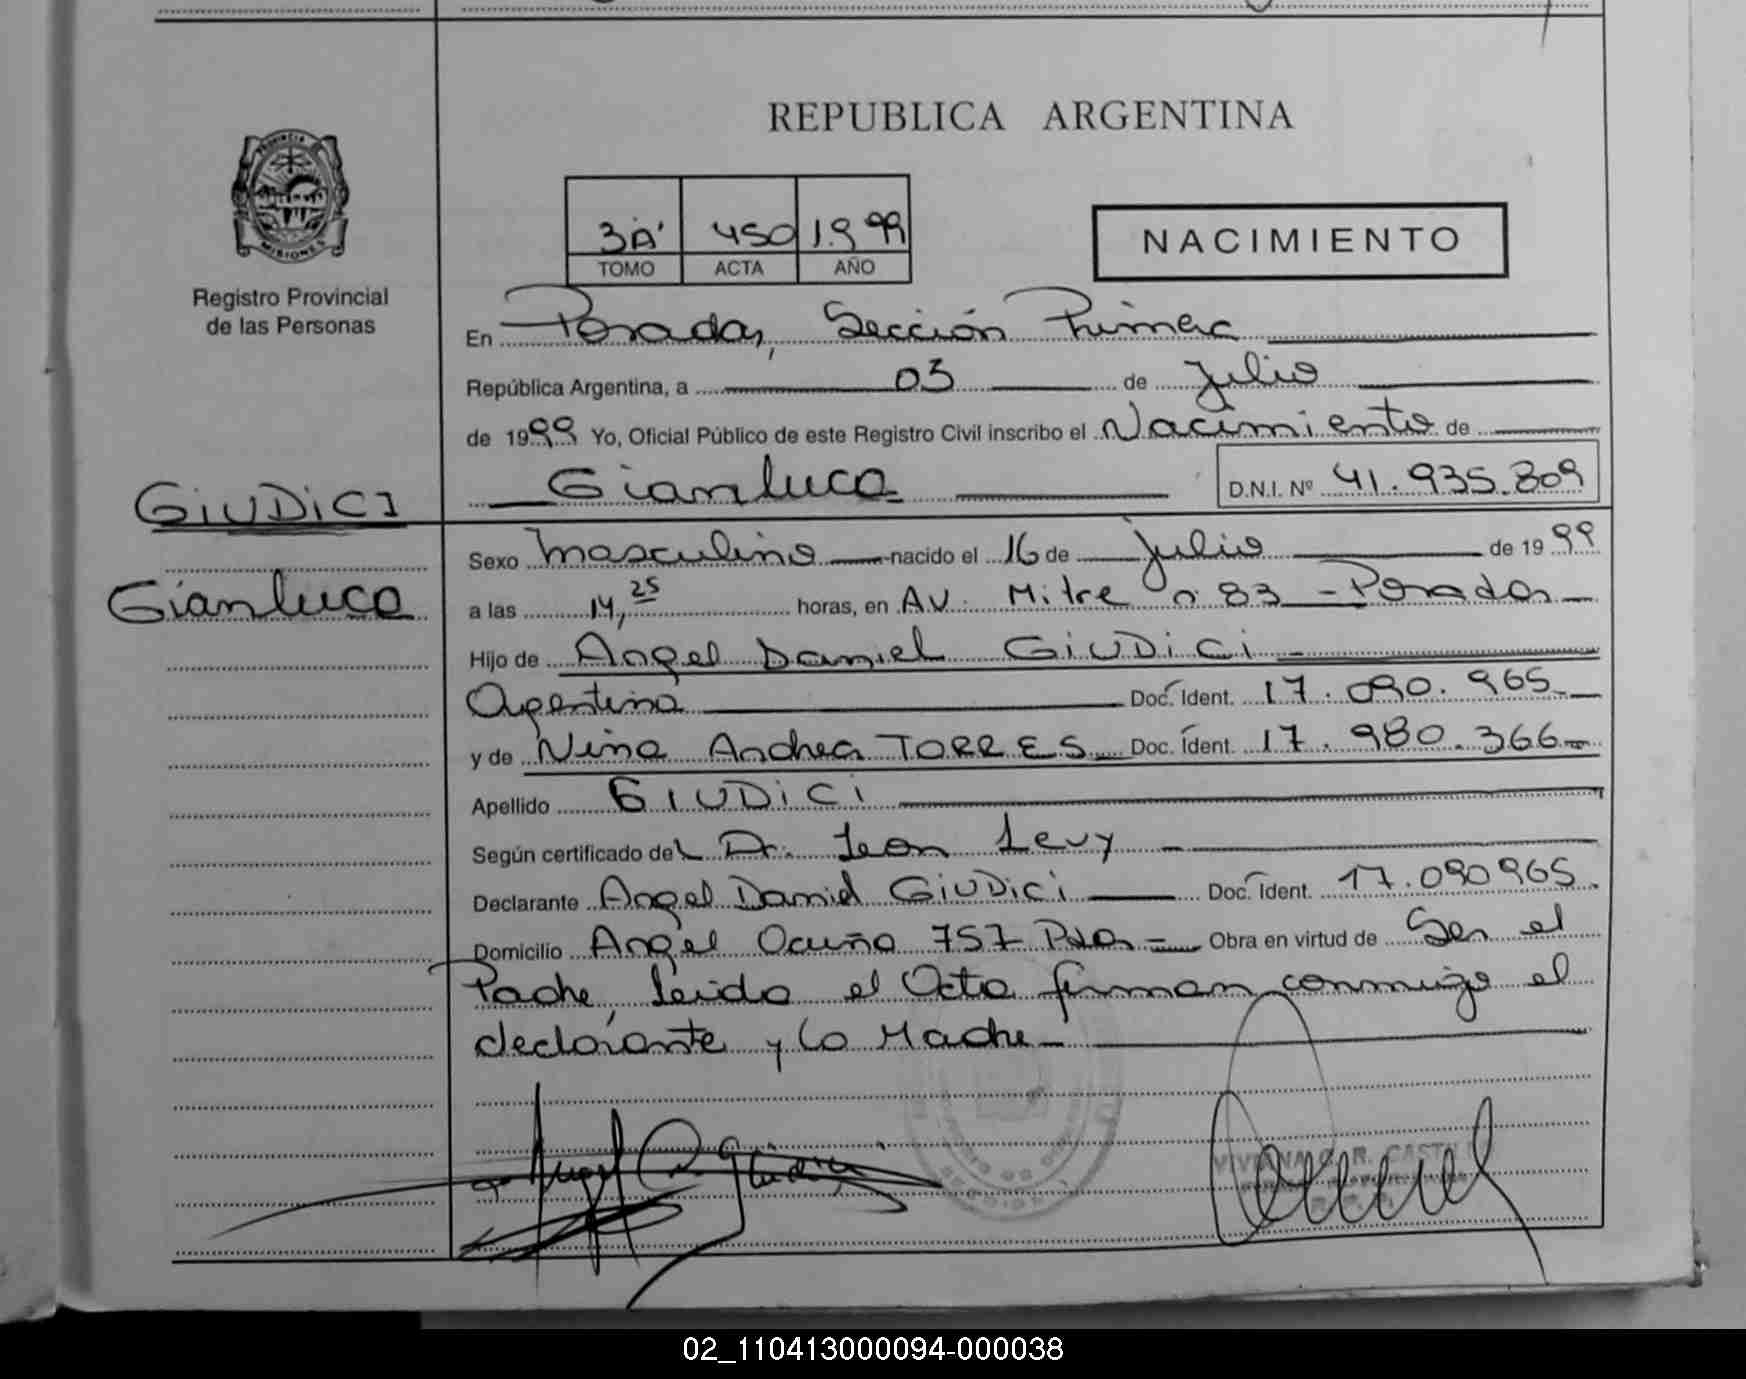 REPUBLICA ARGENTINA
PROVINCIA
MISIONES
Registro Provincial
de las Personas
3A' 450 1.999
TOMO ACTA AÑO
NACIMIENTO
En Posadas, Sección Primera
República Argentina, a 03 de Julio
de 1999 Yo, Oficial Público de este Registro Civil inscribo el Nacimiento de
Gianluca D.N.I. Nº 41.935.809
GIUDICI
Gianluca
Sexo masculino nacido el 16 de Julio de 1999
a las 14,25 horas, en AV. Mitre nº 83 - Posadas
Hijo de Angel Daniel GIUDICI
Argentina Doc. Ident. 17.090.965
y de Nina Andrea TORRES Doc. Ident. 17.980.366
Apellido GIUDICI
Según certificado del Dr. Leon Levy
Declarante Angel Daniel GIUDICI Doc. Ident. 17.090965
Domicilio Angel Acuña 757 Pdas Obra en virtud de Ser el
Padre, Leido el Acta firman conmigo el
declarante y la Madre
02_110413000094-000038